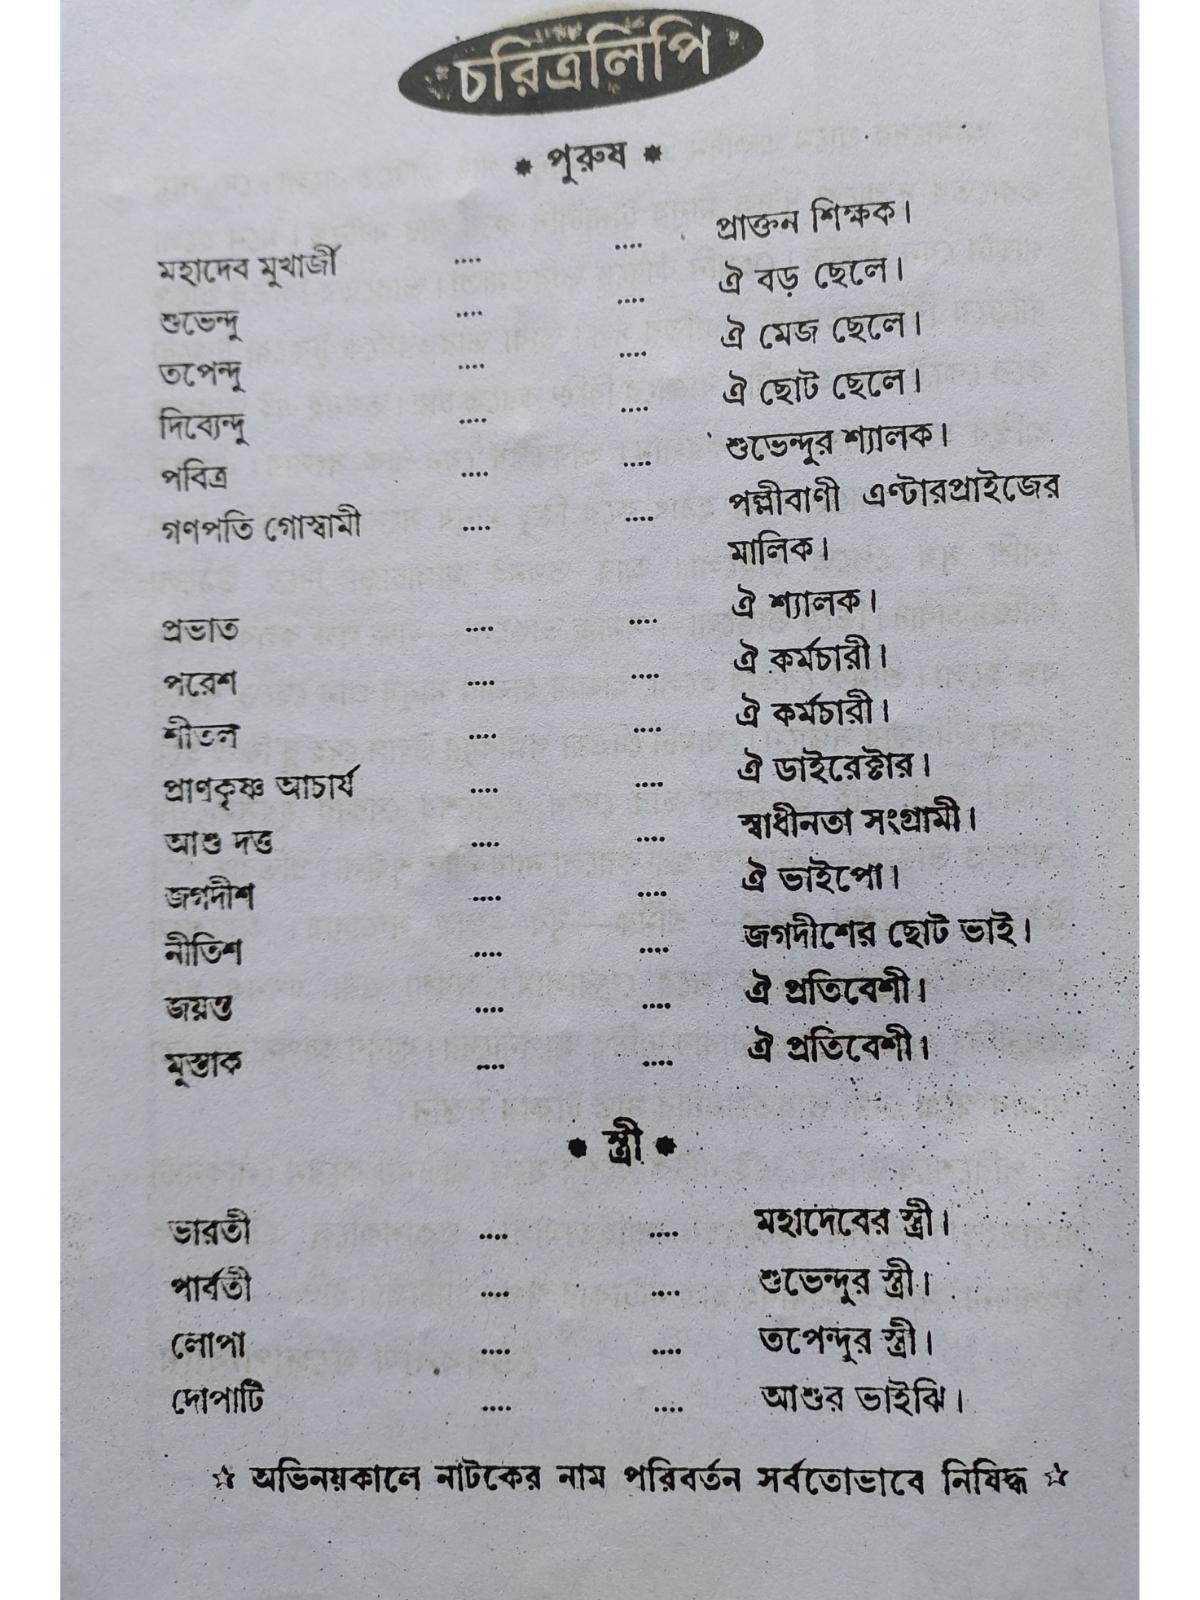 চরিত্রলিপি
* পুরুষ *
মহাদেব মুখার্জী .... .... প্রাক্তন শিক্ষক।
শুভেন্দু .... .... ঐ বড় ছেলে।
তপেন্দু .... .... ঐ মেজ ছেলে।
দিব্যেন্দু .... .... ঐ ছোট ছেলে।
পবিত্র .... .... শুভেন্দুর শ্যালক।
গণপতি গোস্বামী .... .... পল্লীবাণী এণ্টারপ্রাইজের
মালিক।
প্রভাত .... .... ঐ শ্যালক।
পরেশ .... .... ঐ কর্মচারী।
শীতল .... .... ঐ কর্মচারী।
প্রাণকৃষ্ণ আচার্য .... .... ঐ ডাইরেক্টার।
আশু দত্ত .... .... স্বাধীনতা সংগ্রামী।
জগদীশ .... .... ঐ ভাইপো।
নীতিশ .... .... জগদীশের ছোট ভাই।
জয়ন্ত .... .... ঐ প্রতিবেশী।
মুস্তাক .... .... ঐ প্রতিবেশী।
* স্ত্রী *
ভারতী .... .... মহাদেবের স্ত্রী।
পার্বতী .... .... শুভেন্দুর স্ত্রী।
লোপা .... .... তপেন্দুর স্ত্রী।
দোপাটি .... .... আশুর ভাইঝি।
☆ অভিনয়কালে নাটকের নাম পরিবর্তন সর্বতোভাবে নিষিদ্ধ ☆